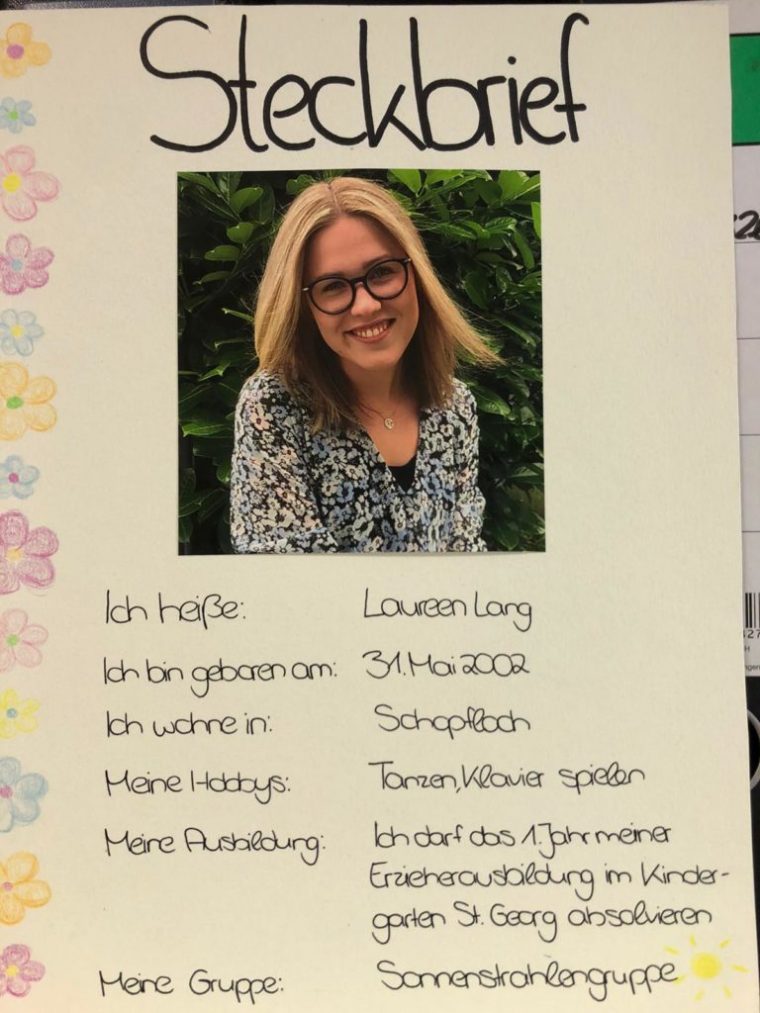 Steckbrief
Ich heiße: Laureen Lang
Ich bin geboren am: 31. Mai 2002
Ich wohne in: Schopfloch
Meine Hobbys: Tanzen, Klavier spielen
Meine Ausbildung: Ich darf das 1. Jahr meiner
Erzieherausbildung im Kinder-
garten St. Georg absolvieren
Meine Gruppe: Sonnenstrahlengruppe